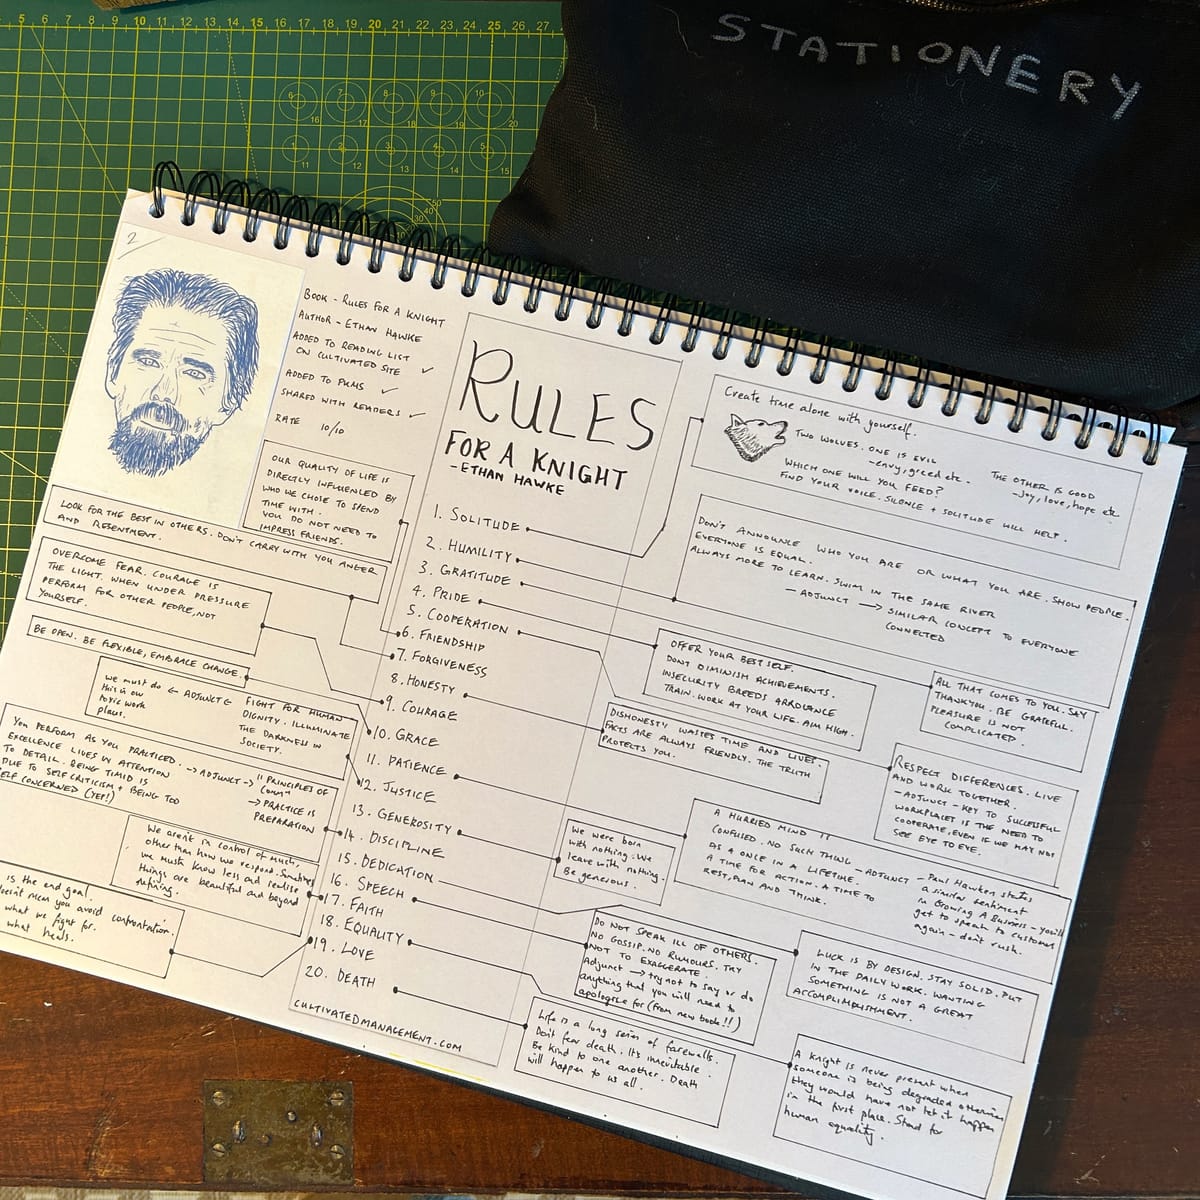 STATIONERY
2
BOOK - RULES FOR A KNIGHT
AUTHOR - ETHAN HAWKE
ADDED TO READING LIST
ON CULTIVATED SITE ✓
ADDED TO PKMS ✓
SHARED WITH READERS ✓
RATE 10/10
OUR QUALITY OF LIFE IS
DIRECTLY INFLUENCED BY
WHO WE CHOSE TO SPEND
TIME WITH.
YOU DO NOT NEED TO
IMPRESS FRIENDS.
LOOK FOR THE BEST IN OTHERS. DON'T CARRY WITH YOU ANGER
AND RESENTMENT.
OVERCOME FEAR. COURAGE IS
THE LIGHT. WHEN UNDER PRESSURE
PERFORM FOR OTHER PEOPLE, NOT
YOURSELF.
BE OPEN. BE FLEXIBLE, EMBRACE CHANGE.
we must do ← ADJUNCT ←
this in our
toxic work
places.
FIGHT FOR HUMAN
DIGNITY. ILLUMINATE
THE DARKNESS IN
SOCIETY.
YOU PERFORM AS YOU PRACTICED. → ADJUNCT → "PRINCIPLES OF
EXCELLENCE LIVES IN ATTENTION
TO DETAIL. BEING TIMID IS
DUE TO SELF CRITICISM + BEING TOO
SELF CONCERNED (YEP!)
→ PRACTICE IS
PREPARATION
We aren't in control of much,
other than how we respond. Sometimes
we must know less and realise
things are beautiful and beyond
defining.
is the end goal.
doesn't mean you avoid confrontation.
what we fight for.
what heals.
RULES
FOR A KNIGHT
- ETHAN HAWKE
1. SOLITUDE
2. HUMILITY
3. GRATITUDE
4. PRIDE
5. COOPERATION
6. FRIENDSHIP
7. FORGIVENESS
8. HONESTY
9. COURAGE
10. GRACE
11. PATIENCE
12. JUSTICE
13. GENEROSITY
14. DISCIPLINE
15. DEDICATION
16. SPEECH
17. FAITH
18. EQUALITY
19. LOVE
20. DEATH
CULTIVATEDMANAGEMENT.COM
Create time alone with yourself.
TWO WOLVES. ONE IS EVIL
- envy, greed etc.
THE OTHER IS GOOD
- joy, love, hope etc
WHICH ONE WILL YOU FEED?
FIND YOUR VOICE. SILENCE + SOLITUDE WILL HELP.
DON'T ANNOUNCE WHO YOU ARE OR WHAT YOU ARE. SHOW PEOPLE.
EVERYONE IS EQUAL.
ALWAYS MORE TO LEARN. SWIM IN THE SAME RIVER
- ADJUNCT → SIMILAR CONCEPT TO EVERYONE
CONNECTED
OFFER YOUR BEST SELF.
DONT DIMINISH ACHIEVEMENTS.
INSECURITY BREEDS ARROGANCE
TRAIN. WORK AT YOUR LIFE. AIM HIGH.
ALL THAT COMES TO YOU. SAY
THANKYOU. BE GRATEFUL.
PLEASURE IS NOT
COMPLICATED.
DISHONESTY WASTES TIME AND LIVES.
FACTS ARE ALWAYS FRIENDLY. THE TRUTH
PROTECTS YOU.
RESPECT DIFFERENCES. LIVE
AND WORK TOGETHER.
- ADJUNCT - KEY TO SUCCESSFUL
WORKPLACES IS THE NEED TO
COOPERATE, EVEN IF WE MAY NOT
SEE EYE TO EYE.
We were born
with nothing. We
leave with nothing.
Be generous.
A HURRIED MIND IS
CONFUSED. NO SUCH THING
AS A ONCE IN A LIFETIME.
A TIME FOR ACTION. A TIME TO
REST, PLAN AND THINK.
- ADJUNCT - Paul Hawken states
a similar sentiment
in Growing A Business - you'll
get to speak to customer
again - don't rush.
DO NOT SPEAK ILL OF OTHERS.
NO GOSSIP. NO RUMOURS. TRY
NOT TO EXAGGERATE.
Adjunct → try not to say or do
anything that you will need to
apologise for (from new book!!)
LUCK IS BY DESIGN. STAY SOLID. PUT
IN THE DAILY WORK. WANTING
SOMETHING IS NOT A GREAT
ACCOMPLISHMENT.
Life is a long series of farewells.
Don't fear death. It's inevitable.
Be kind to one another. Death
will happen to us all.
A knight is never present when
someone is being degraded otherwise
they would have not let it happen
in the first place. Stand for
human equality.
5 6 7 8 9 10 11 12 13 14 15 16 17 18 19 20 21 22 23 24 25 26 27